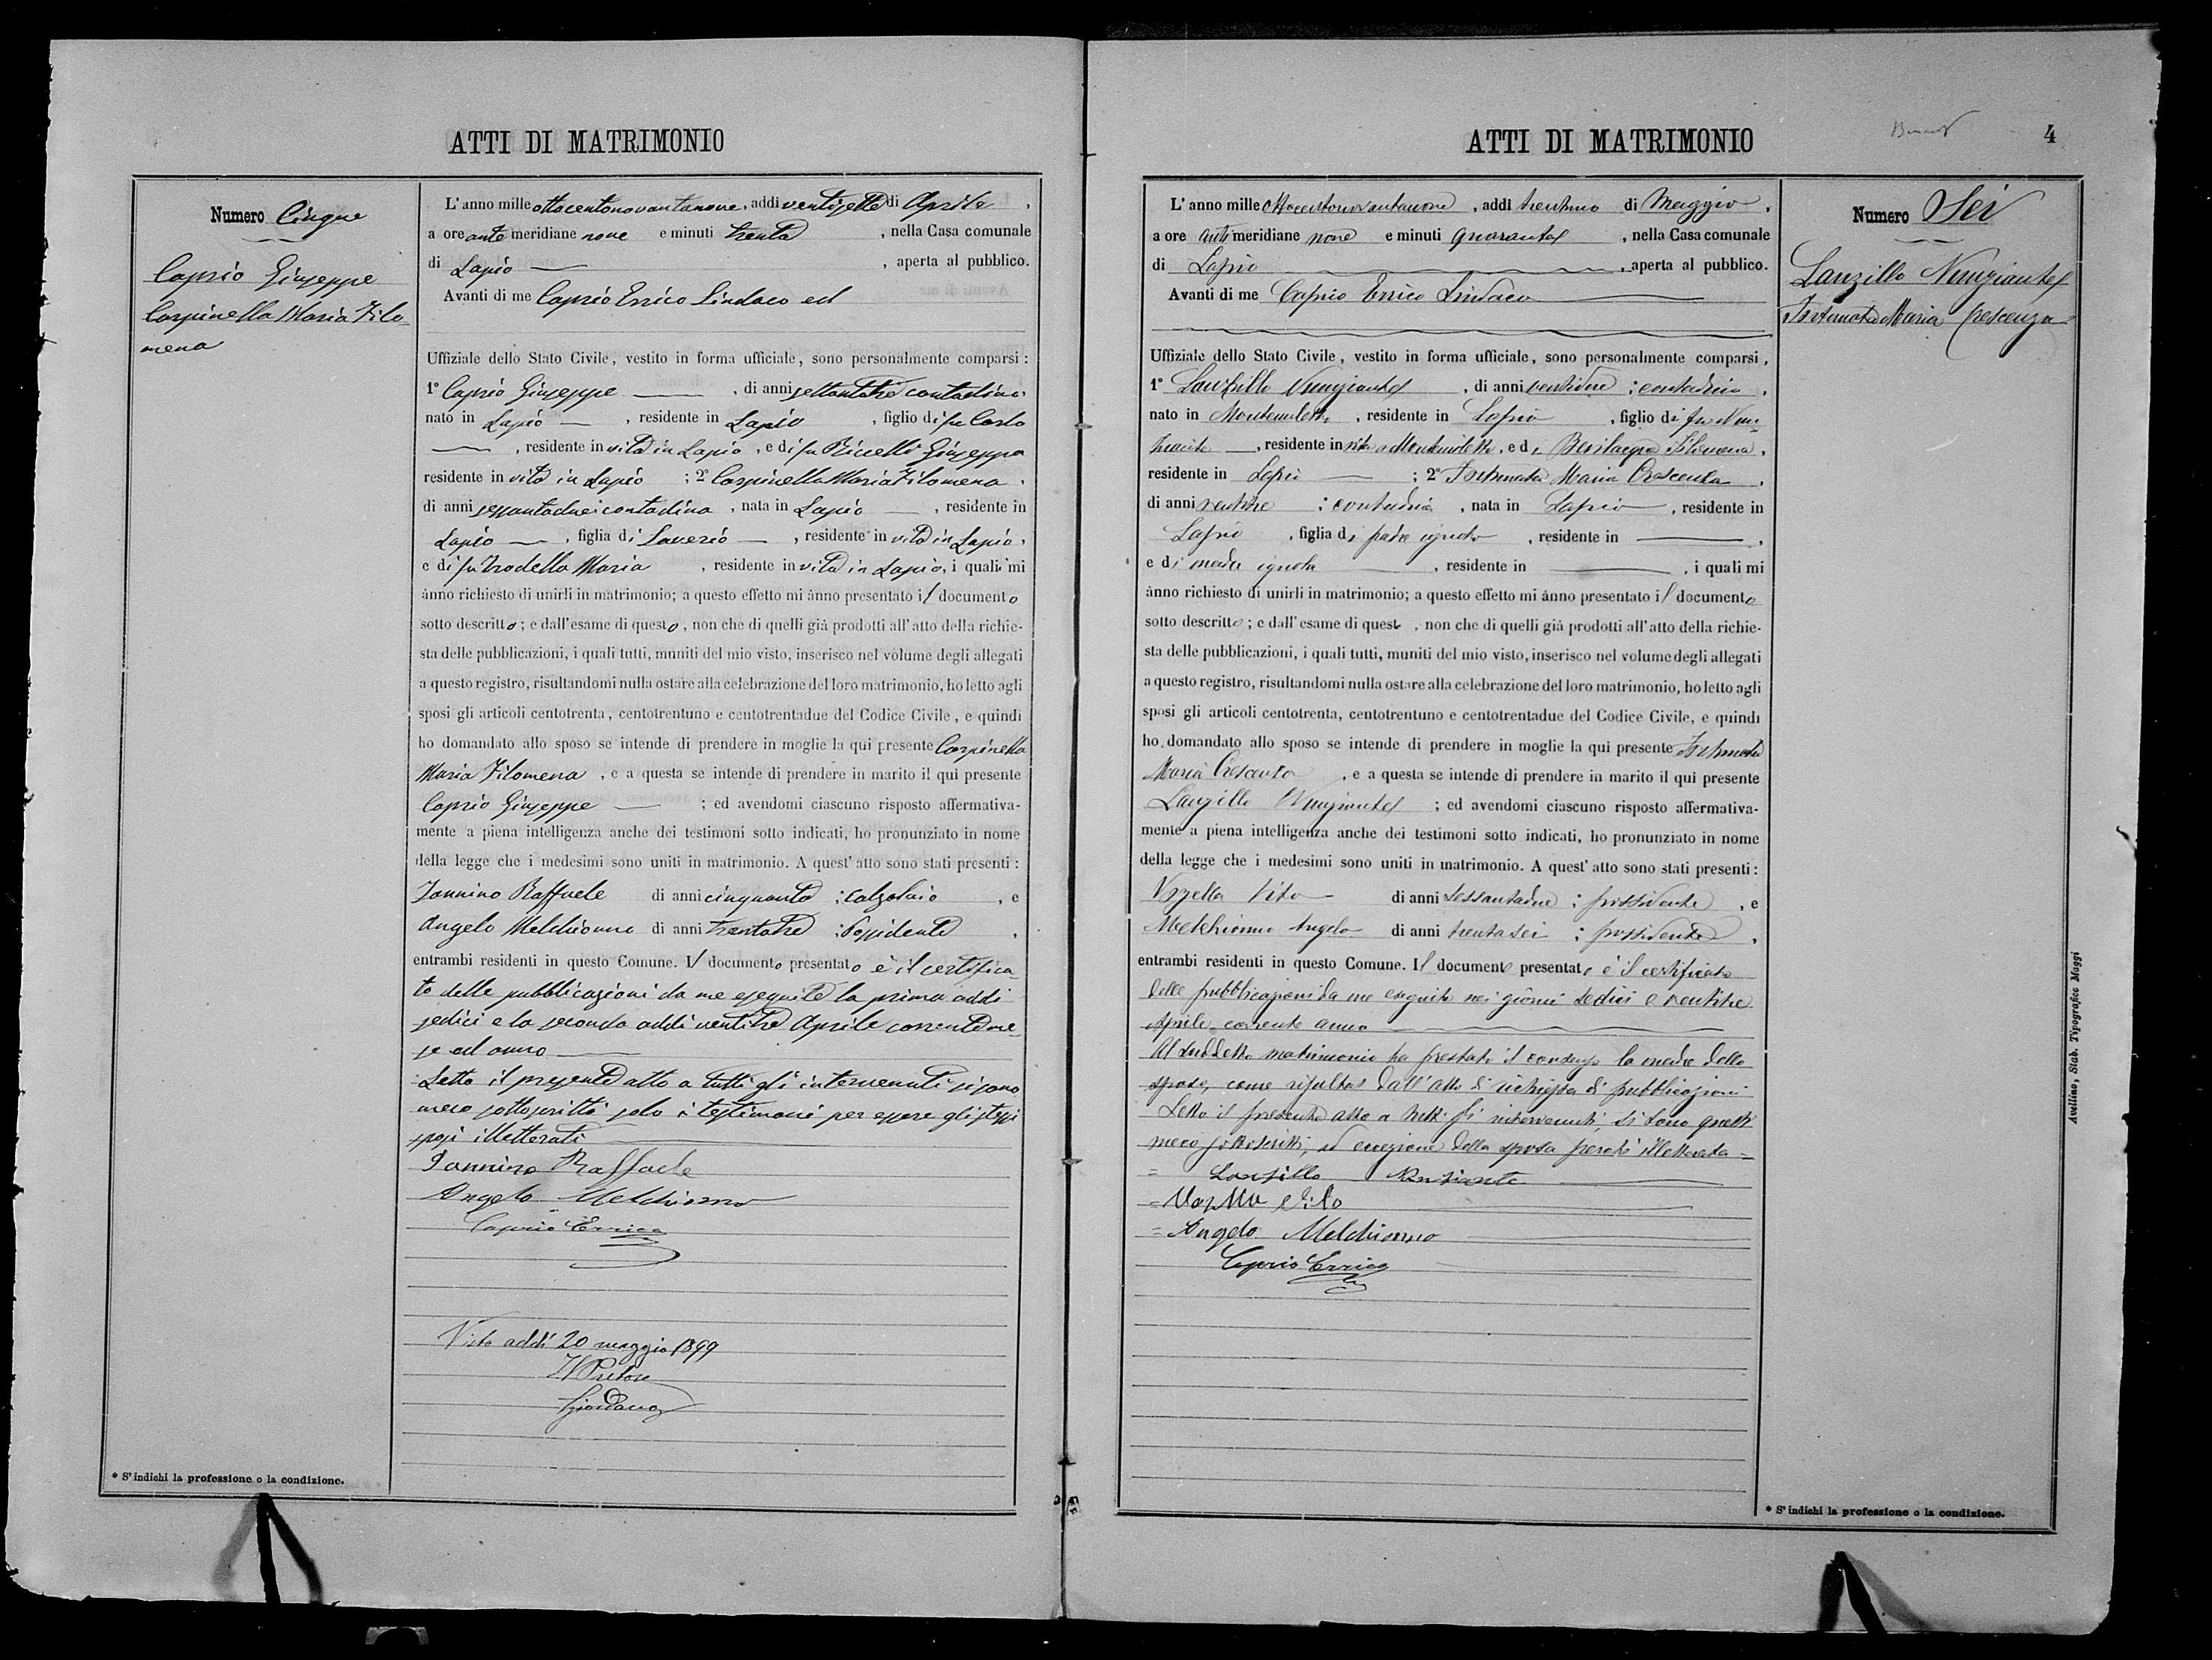 ATTI DI MATRIMONIO
Numero Cinque
Caprio Giuseppe
Carpinella Maria Filo-
mena
L'anno mille ottocentonovantanove, addì ventisette di Aprile,
a ore ante meridiane nove e minuti trenta, nella Casa comunale
di Lapio, aperta al pubblico.
Avanti di me Caprio Errico Sindaco ed
Uffiziale dello Stato Civile, vestito in forma ufficiale, sono personalmente comparsi:
1° Caprio Giuseppe, di anni settantatre contadino,
nato in Lapio, residente in Lapio, figlio di fu Carlo
, residente in vita in Lapio, e di fu Riccelli Giuseppa
residente in vita in Lapio; 2° Carpinella Maria Filomena,
di anni sessantadue contadina, nata in Lapio, residente in
Lapio, figlia di Saverio, residente in vita in Lapio,
e di fu Trodella Maria, residente in vita in Lapio, i quali mi
ànno richiesto di unirli in matrimonio; a questo effetto mi ànno presentato il documento
sotto descritto; e dall'esame di questo, non che di quelli già prodotti all'atto della richie-
sta delle pubblicazioni, i quali tutti, muniti del mio visto, inserisco nel volume degli allegati
a questo registro, risultandomi nulla ostare alla celebrazione del loro matrimonio, ho letto agli
sposi gli articoli centotrenta, centotrentuno e centotrentadue del Codice Civile, e quindi
ho domandato allo sposo se intende di prendere in moglie la qui presente Carpinella
Maria Filomena, e a questa se intende di prendere in marito il qui presente
Caprio Giuseppe; ed avendomi ciascuno risposto affermativa-
mente a piena intelligenza anche dei testimoni sotto indicati, ho pronunziato in nome
della legge che i medesimi sono uniti in matrimonio. A quest'atto sono stati presenti:
Iannino Raffaele di anni cinquanta; calzolaio, e
Angelo Melchionno di anni trentatre; Possidente,
entrambi residenti in questo Comune. Il documento presentato è il certifica-
to delle pubblicazioni da me eseguite la prima addì
sedici e la seconda addì ventitre Aprile corrente me-
se ed anno
Letto il presente atto a tutti gl'intervenuti si sono
meco sottoscritti solo i testimoni per essere gli stessi
sposi illetterati
Iannino Raffaele
Angelo Melchionno
Caprio Errico
Visto addì 20 maggio 1899
Il Pretore
Giordano
* S'indichi la professione o la condizione.
ATTI DI MATRIMONIO
4
Numero Sei
Lanzillo Nunziante
Fortunata Maria Crescenza
L'anno mille Ottocentonovantanove, addì trentuno di Maggio,
a ore anti meridiane nove e minuti quaranta, nella Casa comunale
di Lapio, aperta al pubblico.
Avanti di me Caprio Errico Sindaco
Uffiziale dello Stato Civile, vestito in forma ufficiale, sono personalmente comparsi,
1° Lanzillo Nunziante, di anni ventidue; contadino,
nato in Montemiletto, residente in Lapio, figlio di fu Nun-
ziante, residente in vita a Montemiletto, e di Filomena,
residente in Lapio; 2° Fortunata Maria Crescenza,
di anni ventitre; contadina, nata in Lapio, residente in
Lapio, figlia di padre ignoto, residente in
e di madre ignota, residente in, i quali mi
ànno richiesto di unirli in matrimonio; a questo effetto mi ànno presentato il documento
sotto descritto; e dall'esame di questo, non che di quelli già prodotti all'atto della richie-
sta delle pubblicazioni, i quali tutti, muniti del mio visto, inserisco nel volume degli allegati
a questo registro, risultandomi nulla ostare alla celebrazione del loro matrimonio, ho letto agli
sposi gli articoli centotrenta, centotrentuno e centotrentadue del Codice Civile, e quindi
ho domandato allo sposo se intende di prendere in moglie la qui presente Fortunata
Maria Crescenza, e a questa se intende di prendere in marito il qui presente
Lanzillo Nunziante; ed avendomi ciascuno risposto affermativa-
mente a piena intelligenza anche dei testimoni sotto indicati, ho pronunziato in nome
della legge che i medesimi sono uniti in matrimonio. A quest'atto sono stati presenti:
Vozzella Vito di anni sessantadue; possidente, e
Melchionno Angelo di anni trentasei; possidente,
entrambi residenti in questo Comune. Il documento presentato è il certificato
delle pubblicazioni da me eseguite nei giorni sedici e ventitre
aprile corrente anno
Al suddetto matrimonio ha prestato il consenso la madre dello
sposo, come risulta dall'atto di richiesta di pubblicazioni
Letto il presente atto a tutti gli intervenuti, si sono questi
meco sottoscritti, ad eccezione della sposa perché illetterata =
= Lanzillo Nunziante
= Vito
= Angelo Melchionno
Caprio Errico
* S'indichi la professione o la condizione.
Avellino, Stab. Tipografico Maggi